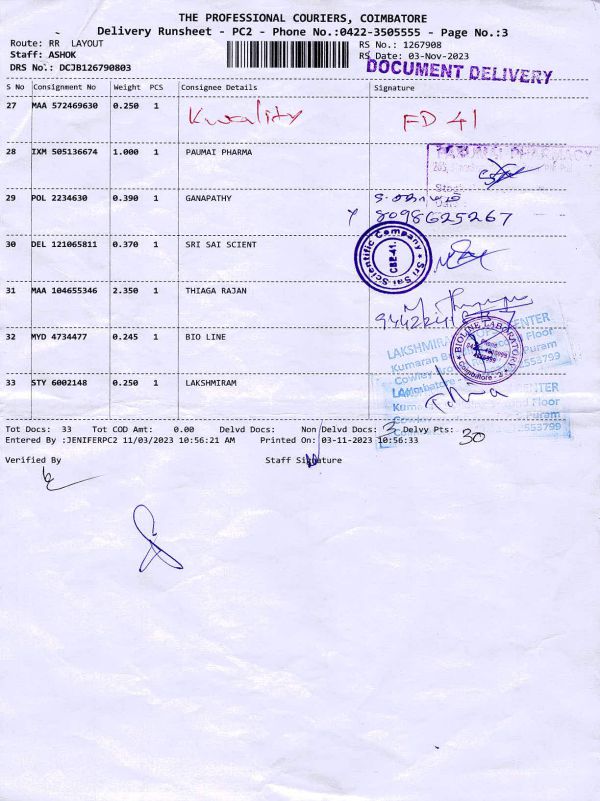 THE PROFESSIONAL COURIERS, COIMBATORE
Delivery Runsheet - PC2 - Phone No.:0422-3505555 - Page No.:3
Route: RR LAYOUT
RS No.: 1267908
Staff: ASHOK
RS Date: 03-Nov-2023
DRS No.: DCJB126790803
DOCUMENT DELIVERY
S No Consignment No Weight PCS Consignee Details Signature
27 MAA 572469630 0.250 1 Kwality FD 41
28 IXM 505136674 1.000 1 PAUMAI PHARMA
29 POL 2234630 0.390 1 GANAPATHY
8098625267
30 DEL 121065811 0.370 1 SRI SAI SCIENT
Sri Sai Scientific Company
CBE-41.
31 MAA 104655346 2.350 1 THIAGA RAJAN
32 MYD 4734477 0.245 1 BIO LINE
BIOLINE LABORATORY
Coimbatore - 2
33 STY 6002148 0.250 1 LAKSHMIRAM
Tot Docs: 33 Tot COD Amt: 0.00 Delvd Docs: Non Delvd Docs: 3 Delvy Pts: 30
Entered By :JENIFERPC2 11/03/2023 10:56:21 AM Printed On: 03-11-2023 10:56:33
Verified By Staff Signature